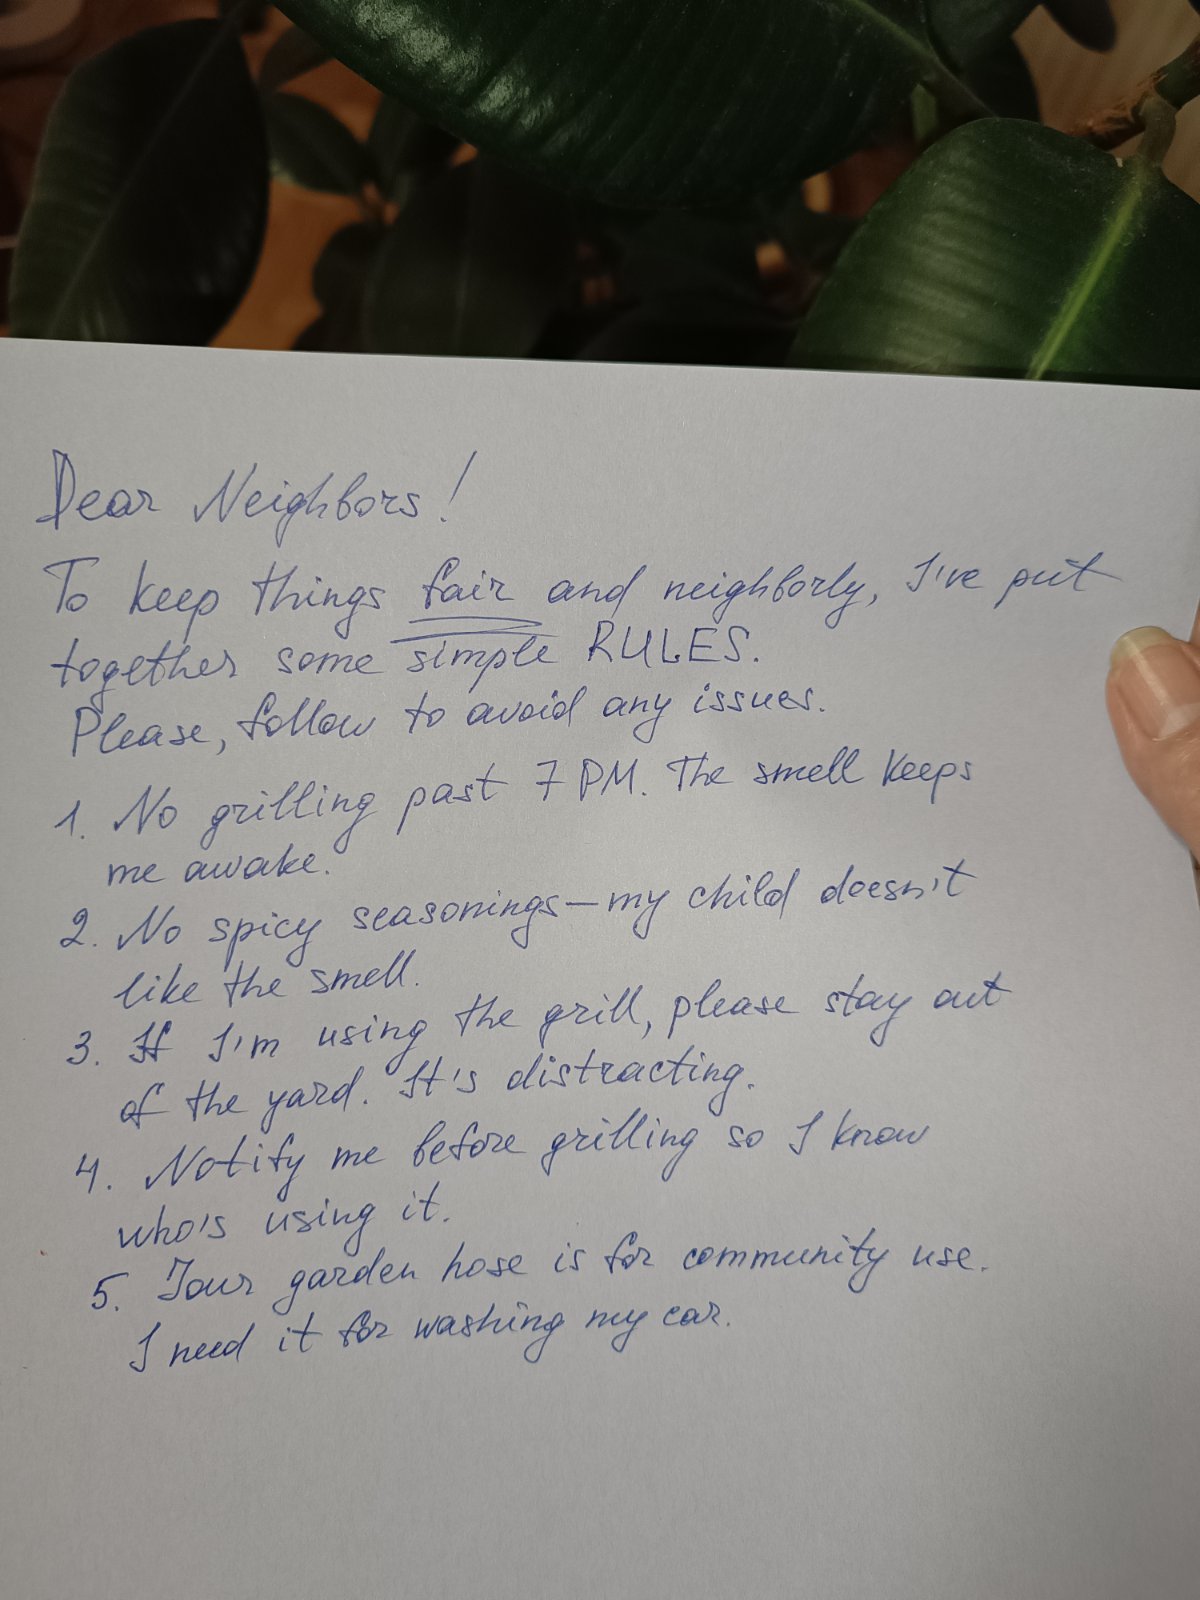 Dear Neighbors!
To keep things fair and neighborly, I've put
together some simple RULES.
Please, follow to avoid any issues.
1. No grilling past 7 PM. The smell keeps
me awake.
2. No spicy seasonings–my child doesn't
like the smell.
3. If I'm using the grill, please stay out
of the yard. It's distracting.
4. Notify me before grilling so I know
who's using it.
5. Your garden hose is for community use.
I need it for washing my car.